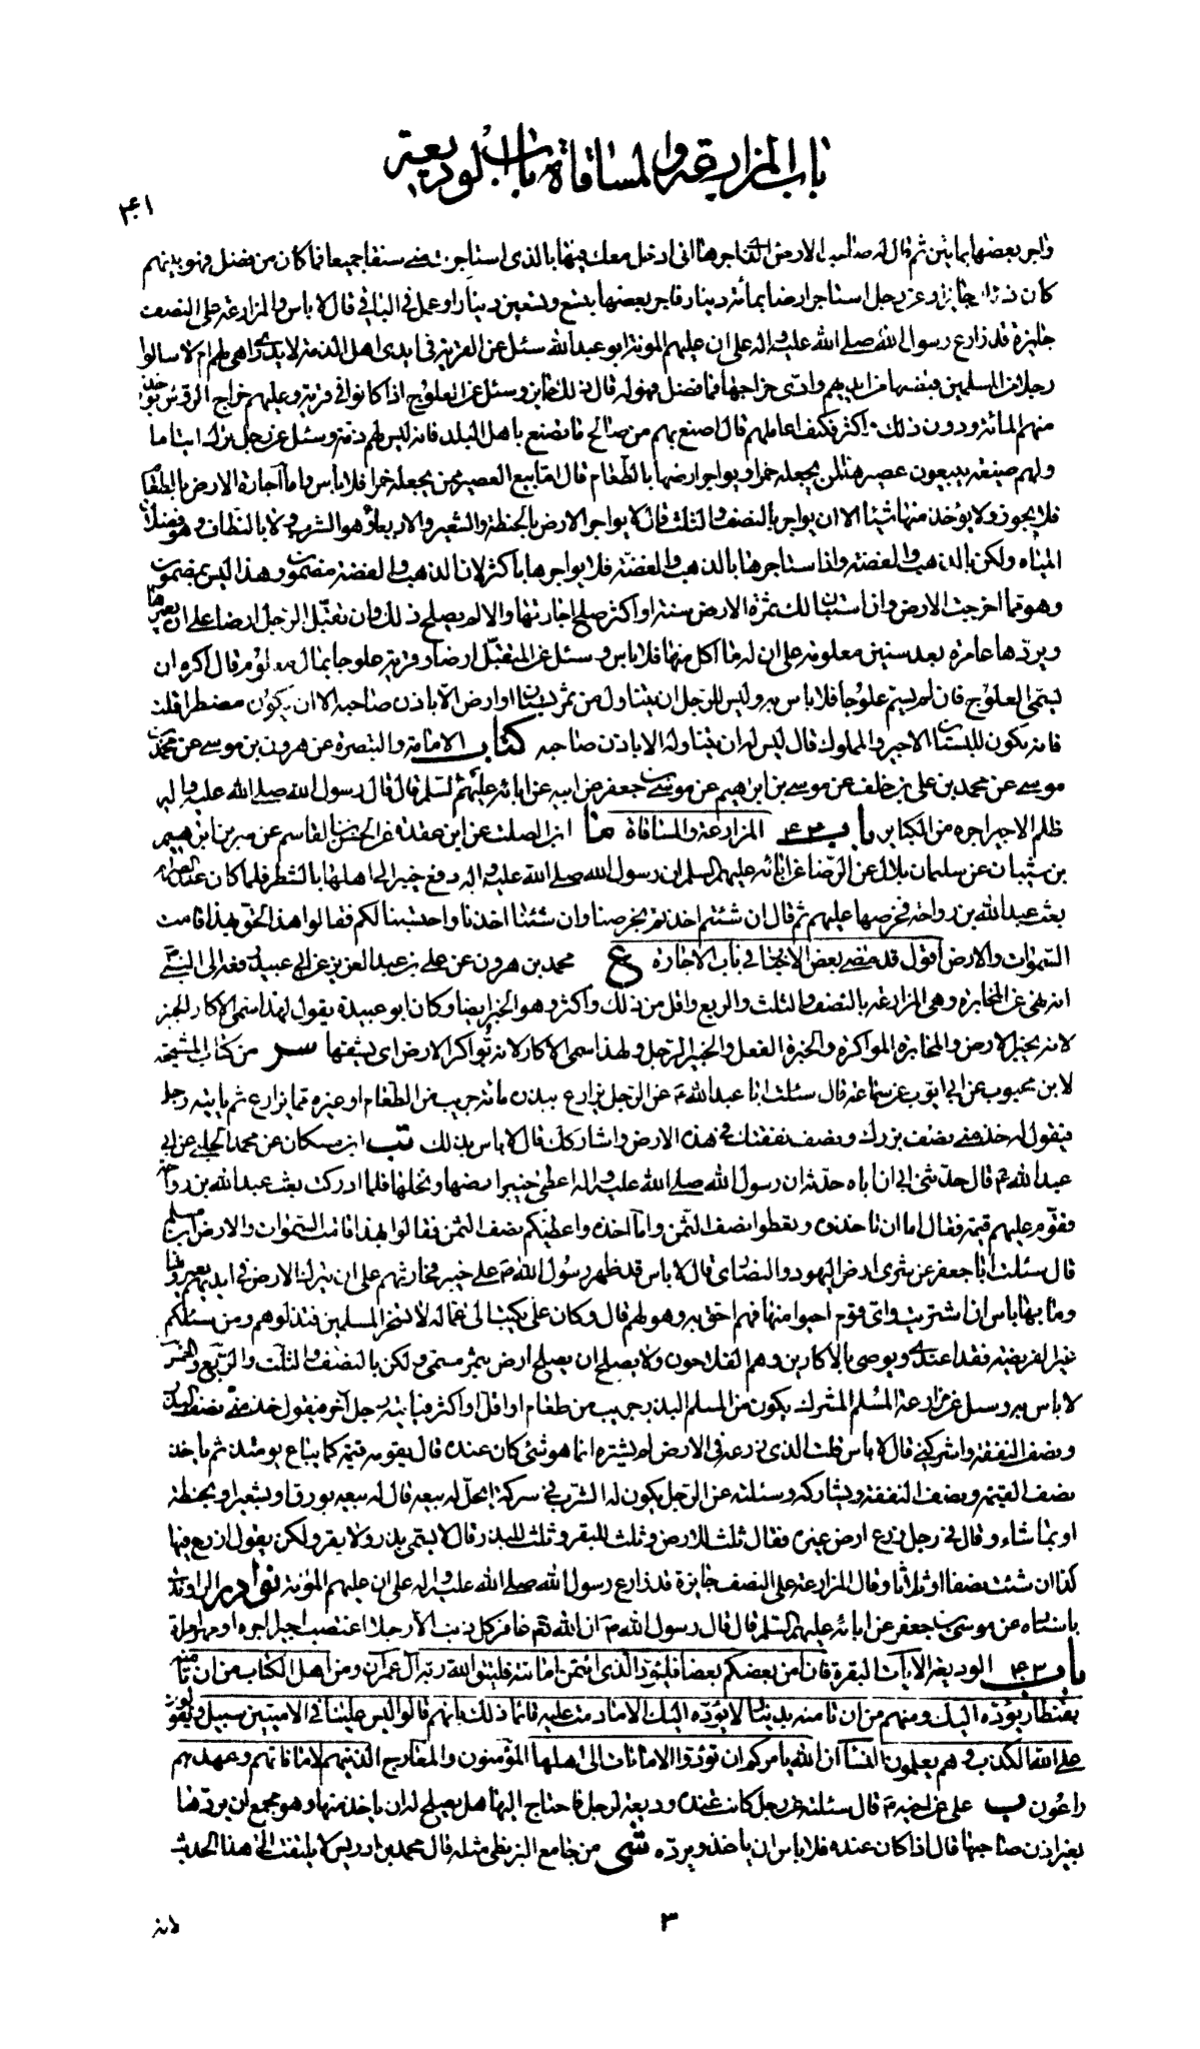 باب المزارعة والمساقاة باب الوديعة
۴۱
واجر بعضها بمائتين ثم قال له صاحب الارض الذي اجرها اني ادخل معك فيها بالذي استاجرت مني سنفق جميعا فما كان من فضل فهو بينهم
كان ذلك جايزا وعن رجل استاجر ارضا بمائة دينار فاجر بعضها بتسع وتسعين دينارا وعمل في الباقي قال لا باس والمزارعة على النصف
جايزة قد زارع رسول الله صلى الله عليه واله على ان عليهم المونة ابو عبدالله سئل عن القرية في ايدي اهل الذمة لا يدرى اهي لهم ام لا سالوا
رجلا من المسلمين قبضها من ايديهم وادى خراجها فما فضل فهو له قال ذلك جايز وسئل عن العلوج اذا كانوا في قرية وعليهم خراج الرؤس يؤخذ
منهم المائة ودون ذلك واكثر فكيف اعاملهم قال اصنع بهم من صالح ما تصنع باهل البلد فانه ليس لهم ذمة وسئل عن رجل ترك ايتاما
ولهم ضيعة يبيعون عصيرها لمن يجعله خمرا ويواجر ارضها بالطعام قال اما بيع العصير ممن يجعله خمرا فلا باس واما اجارة الارض بالطعام
فلا يجوز ولا يؤخذ منها شيئا الا ان يواجر بالنصف والثلث قال لا يواجر الارض بالحنطة والشعير والاربعاء وهو الشرب ولا بالنطاف وهو فضلات
المياه ولكن بالذهب والفضة واذا استاجرها بالذهب والفضة فلا يواجرها باكثر لان الذهب والفضة مضمون وهذا ليس بمضمون
وهو مما اخرجت الارض وان استبان لك ثمرة الارض سنة او اكثر صلح اجارتها والا لم يصلح ذلك وان تقبل الرجل ارضا على ان يعمرها
ويردها عامرة بعد سنين معلومة على ان له ما اكل منها فلا باس وسئل عن المتقبل ارضا وقرية علوجا بمال معلوم قال اكره ان
يسمى العلوج فان لم يسم علوجا فلا باس به وليس للرجل ان يتناول من ثمر بستان او ارض الا باذن صاحبه الا ان يكون مضطرا قلت
فانه يكون للبستان الاجير والمملوك قال ليس له ان يتناوله الا باذن صاحبه كتاب الامامة والتبصرة عن هرون بن موسى عن محمد بن
موسى عن محمد بن على بن خلف عن موسى بن ابراهيم عن موسى بن جعفر عن ابيه عن ابائه عليهم السلم قال قال رسول الله صلى الله عليه واله
ظلم الاجير اجره من الكباير باب ۴۲ المزارعة والمساقاة ما ابن الصلت عن ابن عقدة عن الحسن بن القاسم عن ثبير بن ابراهيم
بن شيبان عن سليمان بلال عن الرضا عن ابائه عليهم السلم ان رسول الله صلى الله عليه واله دفع خيبر الى اهلها بالشطر فلما كان عند الصرام
بعث عبدالله بن رواحة فخرصها عليهم ثم قال ان شئتم اخذتم بخرصنا وان شئنا اخذنا واحتسبنا لكم فقالوا هذا الحق بهذا قامت
السموات والارض اقول قد مضى بعض الاخبار في باب الاجارة مع محمد بن هرون عن على بن عبد العزيز عن ابي عبيد رفعه الى النبي ص
انه نهى عن المخابرة وهي المزارعة بالنصف والثلث والربع واقل من ذلك واكثر وهو الخبر ايضا وكان ابو عبيدة يقول لهذا سمي الاكار الخبير
لانه يخبر الارض والمخابرة المواكرة والخبرة الفعل والخبير الرجل ولهذا سمي الاكار لانه يواكر الارض اى يشقها سر من كتاب المشيخة
لابن محبوب عن ابي ايوب عن سماعة قال سئلت ابا عبدالله ع عن الرجل يزارع ببذره مائة جريب من الطعام او غيره مما يزارع ثم ياتيه رجل
فيقول له خذ مني نصف بزرك ونصف نفقتك في هذه الارض واشاركك قال لا باس بذلك شى ابن مسكان عن محمد الحلبي عن ابي
عبدالله ع قال حدثني ابي ان اباه حدثه ان رسول الله صلى الله عليه واله اعطى خيبرا رضها ونخلها فلما ادركت بعث عبدالله بن رواحة
فقوم عليهم قيمة فقال اما ان تاخذوه وتعطوا نصف الثمن واما اخذه واعطيكم نصف الثمن فقالوا بهذا قامت السموات والارض
قال سئلت ابا جعفر عن شرى ارض اليهود والنصارى قال لا باس قد ظهر رسول الله ص على خيبر فخارثهم على ان يترك الارض في ايديهم يعمرونها
وما بها باس ان اشتريت واى قوم احيوا منها فهم احق به وهو لهم قال وكان على يكتب الى عماله لا تسخروا المسلمين فتذلوهم ومن سئلكم
غير الفريضة فقد اعتدى ويوصي بالاكارين وهم الفلاحون ولا يصلح ان يصلح ارض بثمر مسمى ولكن بالنصف والثلث والربع والخمس
لا باس به وسئل عن مزارعة المسلم المشرك يكون من المسلم البذر جريب من طعام او اقل او اكثر فياتيه رجل اخر فيقول خذ مني نصف البذر
ونصف النفقة واشركني قال لا باس قلت الذي زرعه في الارض لم يشتره انما هو شئ كان عنده قال يقومه قيمة كما يباع يومئذ ثم ياخذ
نصف القيمة ونصف النفقة ويشاركه وسئلته عن الرجل يكون له الشرب في شركة ايحل له بيعه قال له بيعه بورق او بشعير او بحنطة
او بما شاء وقال في رجل زرع ارض غيره فقال ثلث للارض وثلث للبقر وثلث للبذر قال لا يسمى بذر ولا بقر ولكن يقول ازرع فيها
كذا ان شئت نصفا او ثلثا وقال المزارعة على النصف جايزة قد زارع رسول الله صلى الله عليه واله على ان عليهم المؤنة نوادر الراوندي
باسناده عن موسى بن جعفر عن ابائه عليهم السلم قال قال رسول الله ص ان الله تعم غافر كل ذنب الا رجلا اغتصب اجيرا اجره او مهر امراة
باب ۴۳ الوديعة الايات البقرة فان امن بعضكم بعضا فليؤد الذي اؤتمن امانته وليتق الله ربه آل عمران ومن اهل الكتاب من ان تامنه
بقنطار يؤده اليك ومنهم من ان تامنه بدينار لا يؤده اليك الا ما دمت عليه قائما ذلك بانهم قالوا ليس علينا في الاميين سبيل ويقولون
على الله الكذب وهم يعلمون النسا ان الله يامركم ان تؤدوا الامانات الى اهلها المؤمنون والمعارج الذينهم لاماناتهم وعهدهم
راعون ب على عن اخيه ع قال سئلته عن رجل كانت عنده وديعة لرجل فاحتاج اليها هل يصلح له ان ياخذ منها وهو مجمع ان يردها
بغير اذن صاحبها قال اذا كان عنده فلا باس ان ياخذ ويرده شى من جامع البزنطي مثله قال محمد بن ادريس لا يلتفت الى هذا الحديث
۳
لانه